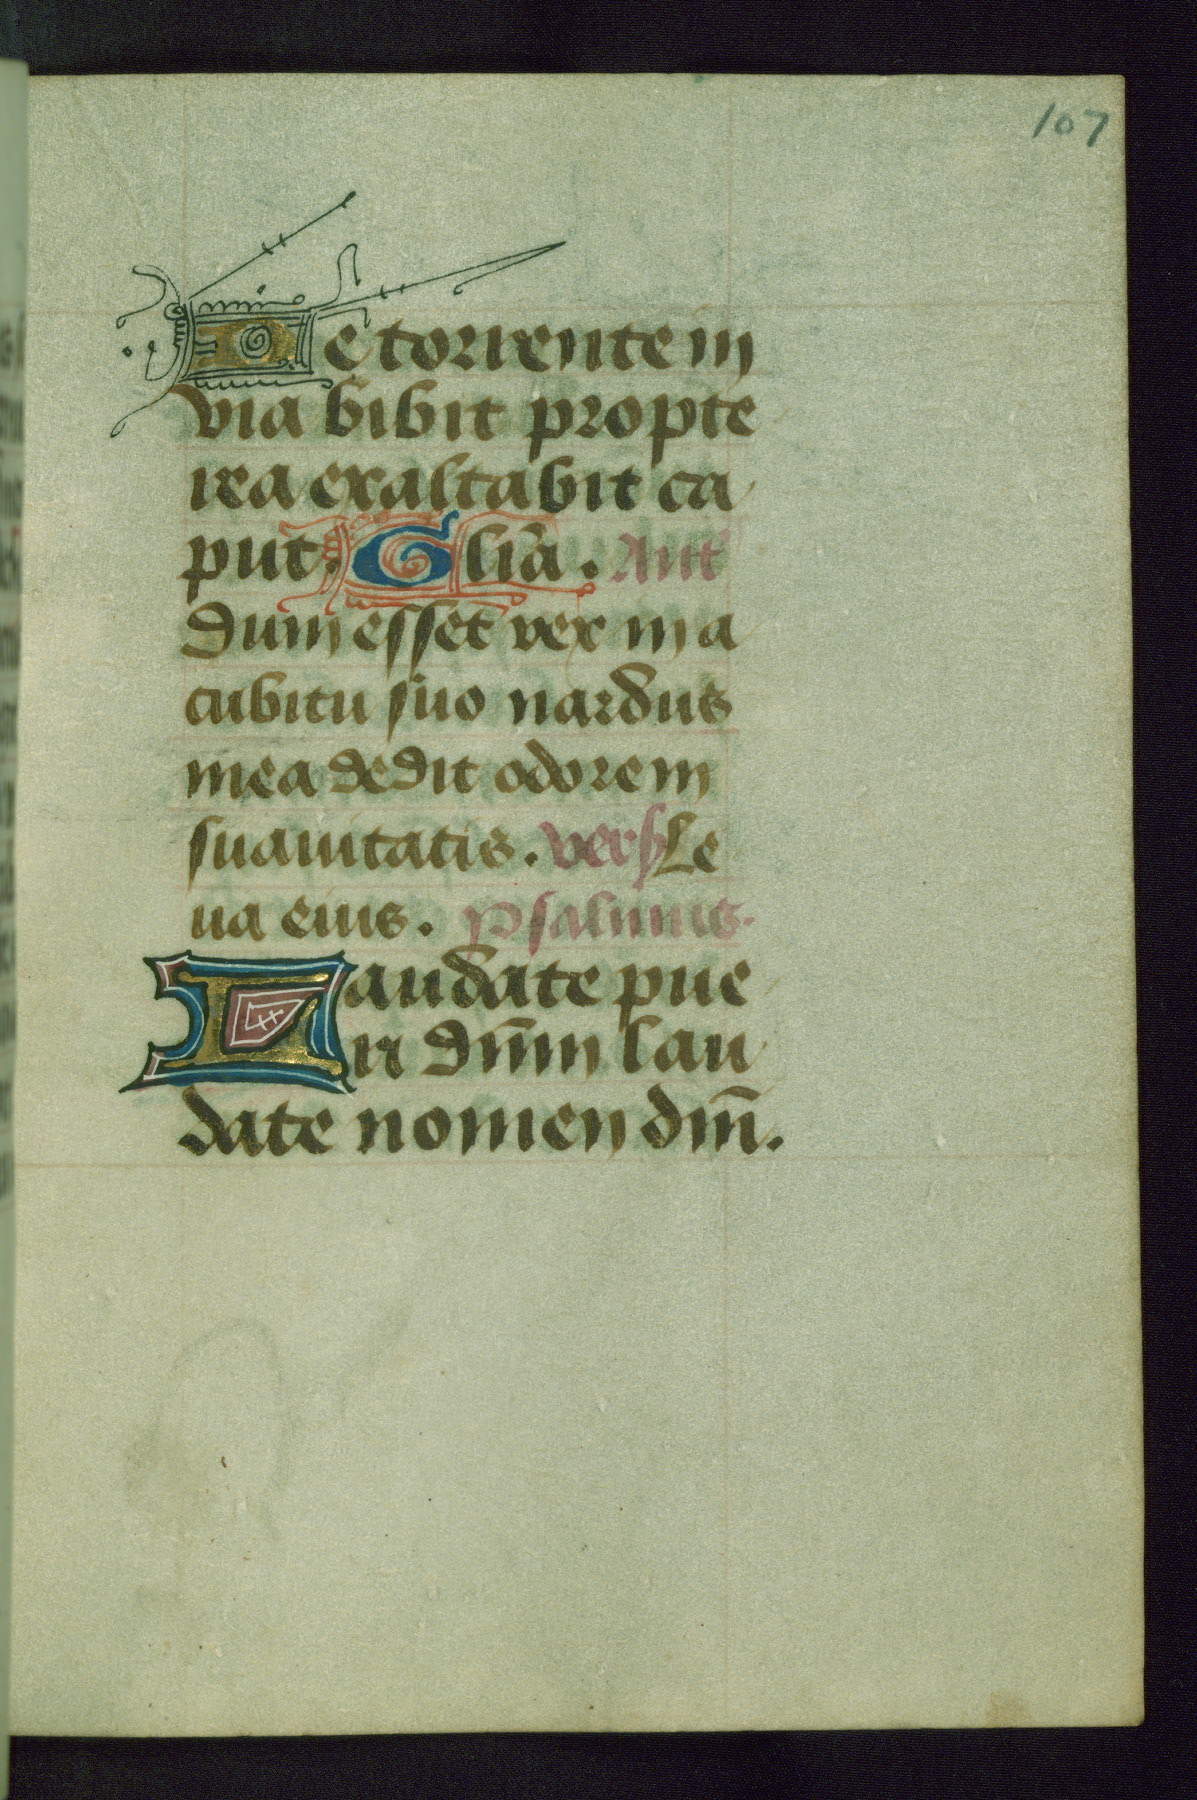 107
De torrente in
via bibit propte
rea exaltabit ca
put. Glia. Ant
dum esset rex in a
cubitu suo nardus
mea dedit odorem
suauitatis. vers Le
ua eius. psalmus.
Laudate pue
ri dnm lau
date nomen dm.